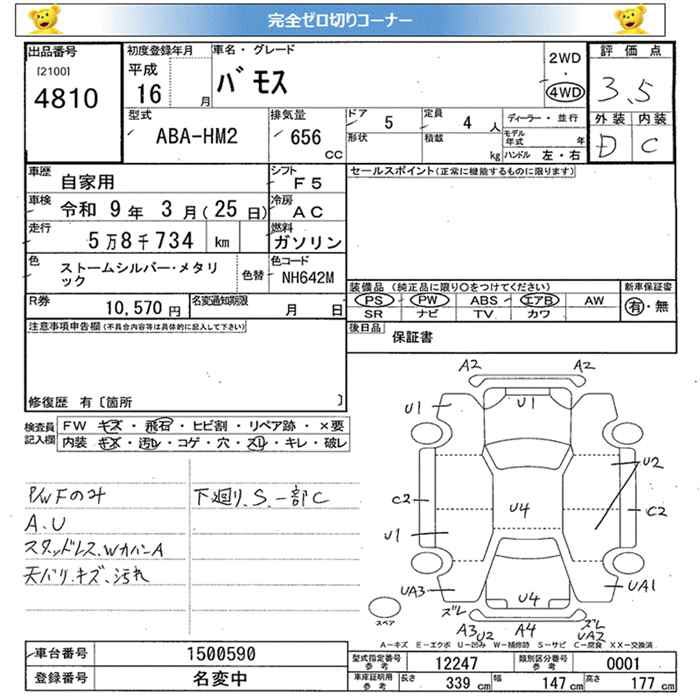 完全ゼロ切りコーナー
出品番号 初度登録年月 車名・グレード 2WD 評価点
[2100] 平成 バモス ・ 3.5
4810 16 月 4WD 外装 内装
型式 排気量 ドア 5 定員 4 人 ディーラー・並行 D C
ABA-HM2 656 CC 形状 積載 kg モデル年式 年
ハンドル 左・右
車歴 自家用 シフト F5 セールスポイント(正常に機能するものに限ります)
車検 令和 9 年 3 月(25 日) 冷房 AC
走行 5万8千734 km 燃料 ガソリン
色 ストームシルバー・メタリ 色替 色コード
ック NH642M
装備品(純正品に限り○をつけてください) 新車保証書
R券 10,570 円 名変通知期限 月 日 PS PW ABS エアB AW 有・無
SR ナビ TV カワ
注意事項申告欄(不具合内容等は具体的に記入して下さい) 後日品 保証書
修復歴 有〔箇所 〕
検査員 FW キズ・飛石・ヒビ割・リペア跡・×要
記入欄 内装 キズ・汚レ・コゲ・穴・スレ・キレ・破レ
P/WFのみ 下廻り.S.一部C
A.U
スタッドレス.WカバーA
天バリ.キズ.汚れ
A2 A2
U1 U1
U2
C2 U4 C2
U1
UA3 U4 UA1
ズレ ズレ
A3 U2 A4 UA2
スペア
A-キズ E-エクボ U-凹み W-補修跡 S-サビ C-腐食 XX-交換済
車台番号 1500590 型式指定番号 参考 12247 類別区分番号 参考 0001
登録番号 名変中 車庫証明用 参考 長さ 339 cm 幅 147 cm 高さ 177 cm